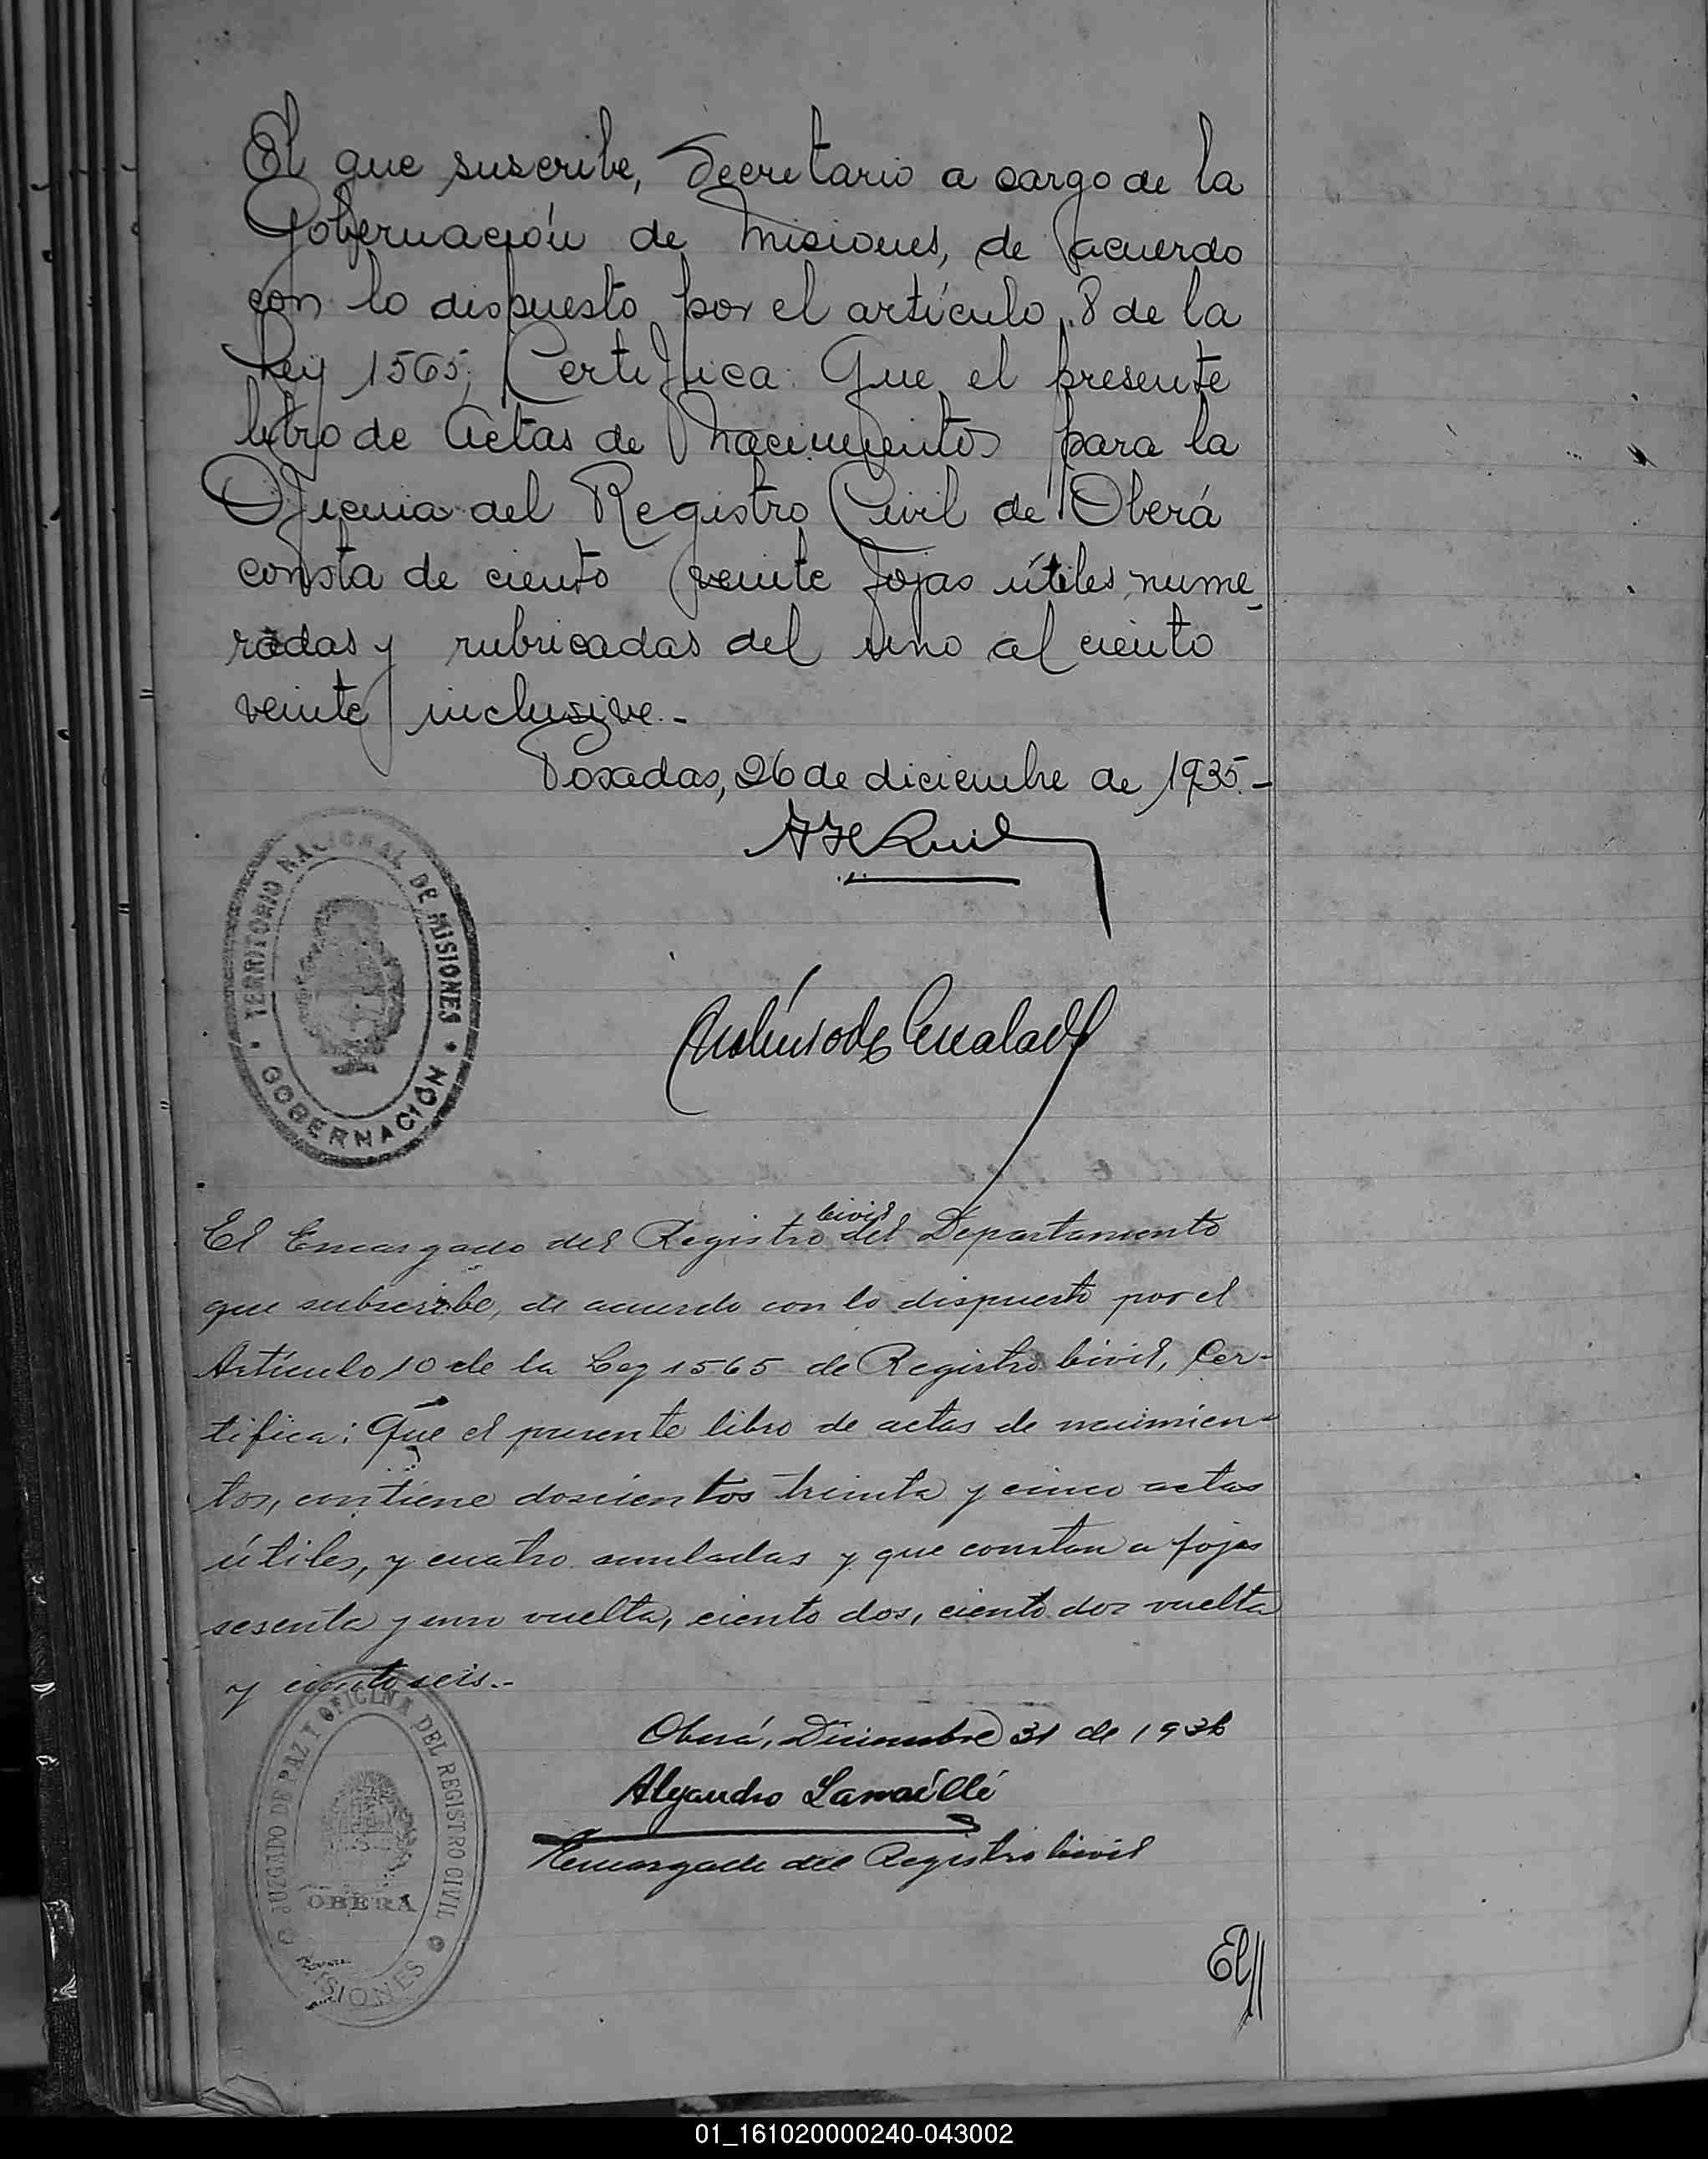 El que suscribe, Secretario a cargo de la
Gobernación de Misiones, de acuerdo
con lo dispuesto por el artículo 8 de la
Ley 1565, Certifica: Que el presente
libro de Actas de Nacimientos para la
Oficina del Registro Civil de Oberá
consta de ciento veinte fojas útiles, nume-
radas y rubricadas del uno al ciento
veinte inclusive.-
Posadas, 26 de diciembre de 1935.-
TERRITORIO NACIONAL DE MISIONES
GOBERNACIÓN
El Encargado del Registro Civil del Departamento
que subscribe, de acuerdo con lo dispuesto por el
Artículo 10 de la Ley 1565 de Registro Civil, Cer-
tifica: Que el presente libro de actas de nacimien-
tos, contiene doscientos treinta y cinco actas
útiles, y cuatro anuladas y que constan a fojas
sesenta y uno vuelta, ciento dos, ciento dos vuelta
y ciento seis.-
Oberá, Diciembre 31 de 1936
Alejandro Lamaéllé
Encargado del Registro Civil
JUZGADO DE PAZ Y OFICINA DEL REGISTRO CIVIL
OBERA
MISIONES
El//
01_161020000240-043002